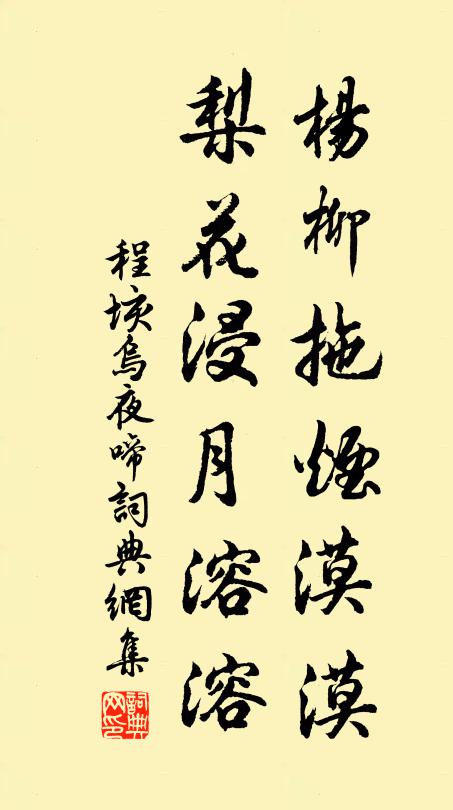 楊柳拖煙漠漠
梨花浸月溶溶
程垓烏夜啼詞典網集
詞典網印